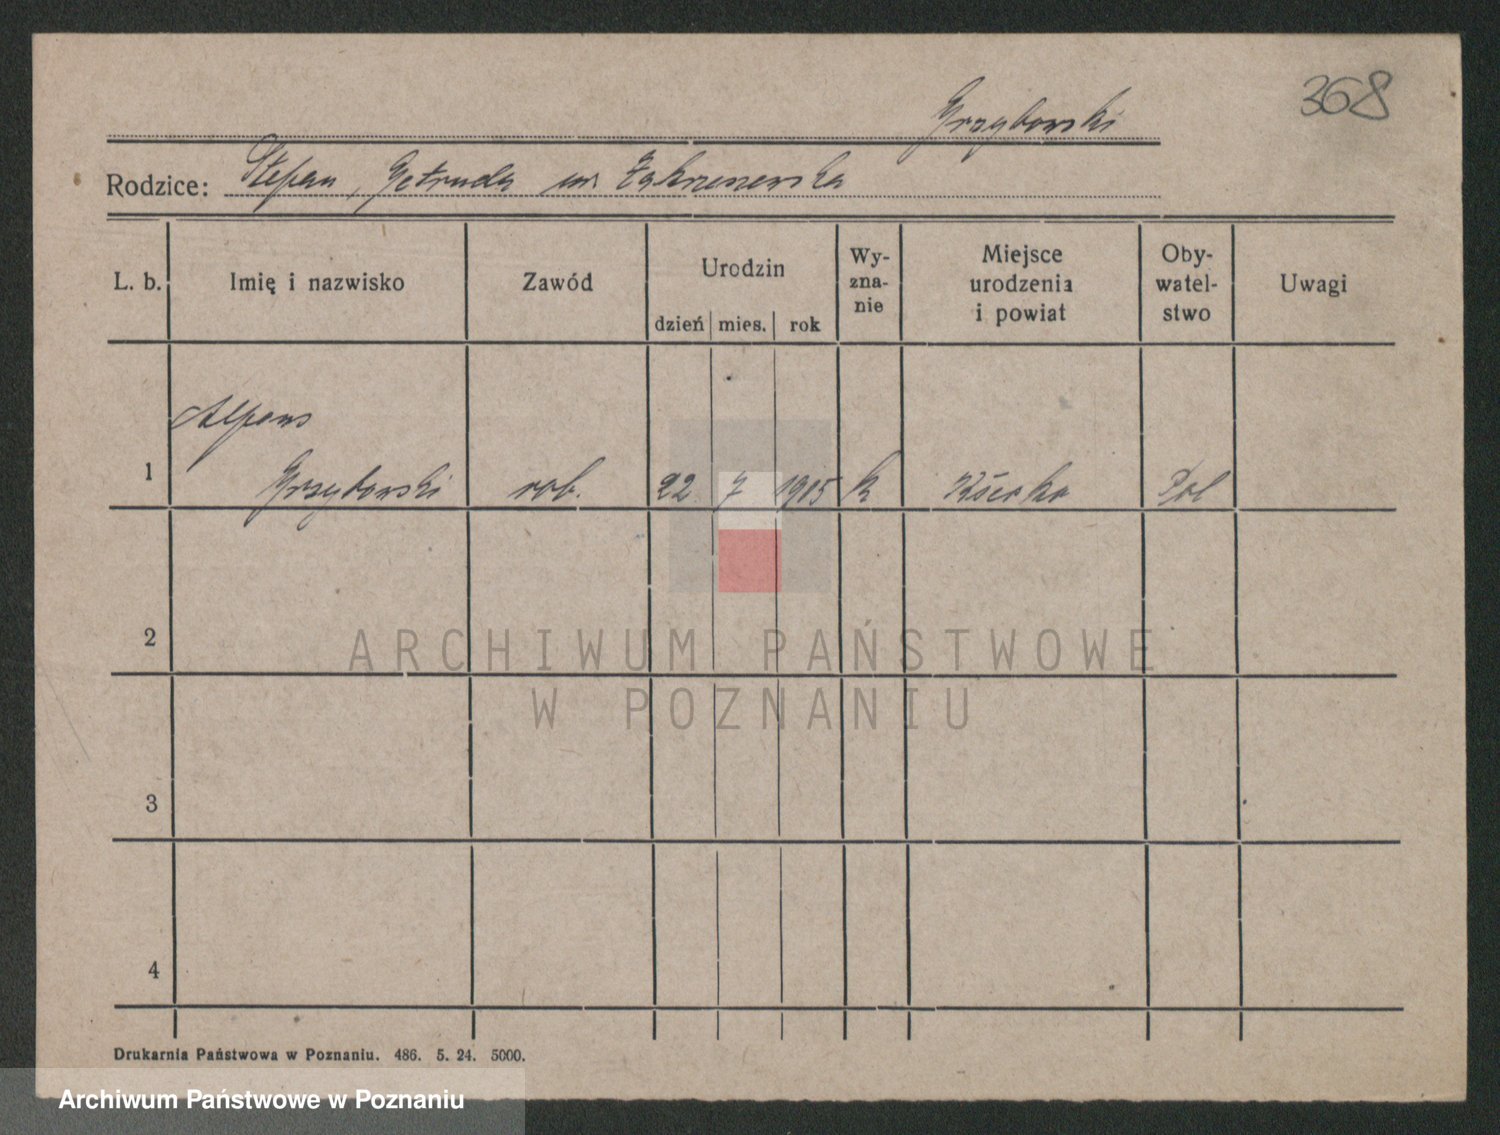 368
Grzybowski
Rodzice: Stefan, Getruda ur. Zakrzewska
L. b. Imię i nazwisko Zawód Urodzin dzień mies. rok Wy-zna-nie Miejsce urodzenia i powiat Oby-watel-stwo Uwagi
Alfons
1 Grzybowski rob. 22 7 1905 k Pol
2
3
4
ARCHIWUM PAŃSTWOWE
W POZNANIU
Drukarnia Państwowa w Poznaniu. 486. 5. 24. 5000.
Archiwum Państwowe w Poznaniu